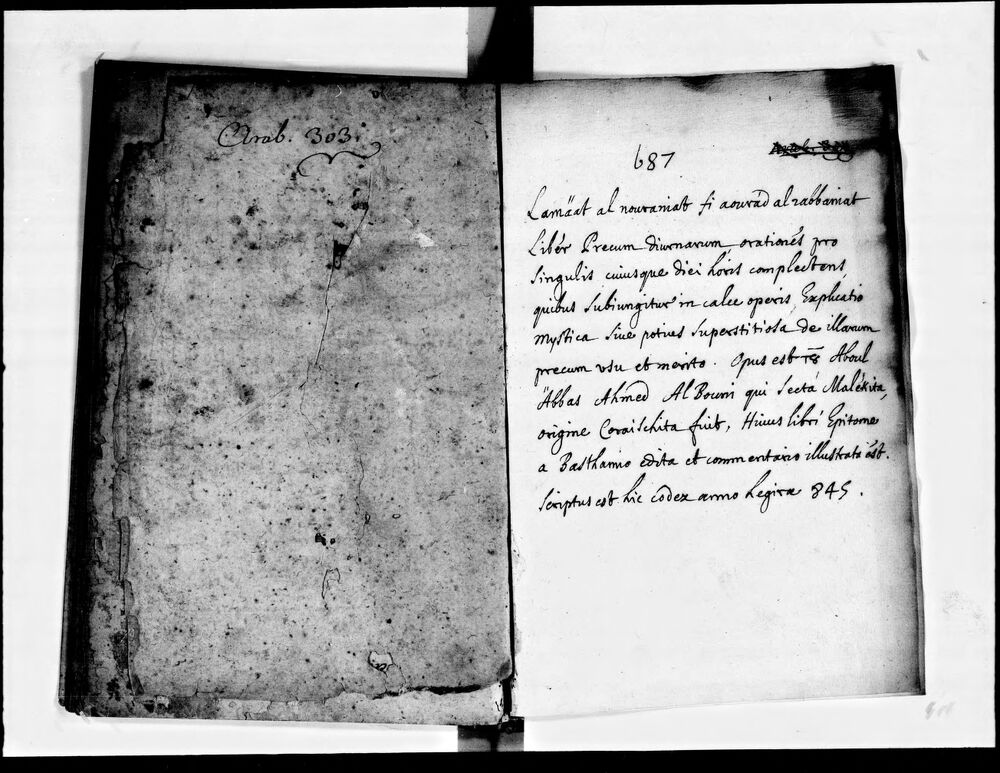 Arab. 303.
687
Lamäat al nouraniat fi aourád al rabbaniat
Libér Precum diurnarum orationés pro
singulis cuiusque diei hóris complectens,
quibus subiungitur in calce operis, Explicatio
mystica siue potius superstitiosa de illarum
precum vsu et merito. Opus est Aboul
Äbbas Ahmed Al Bouni qui sectá Malékita,
origine Coraischita fuit, Huius libri Epitome
a Basthamio edita et commentario illustrata ést.
scriptus est hic codex anno hegirae 845.